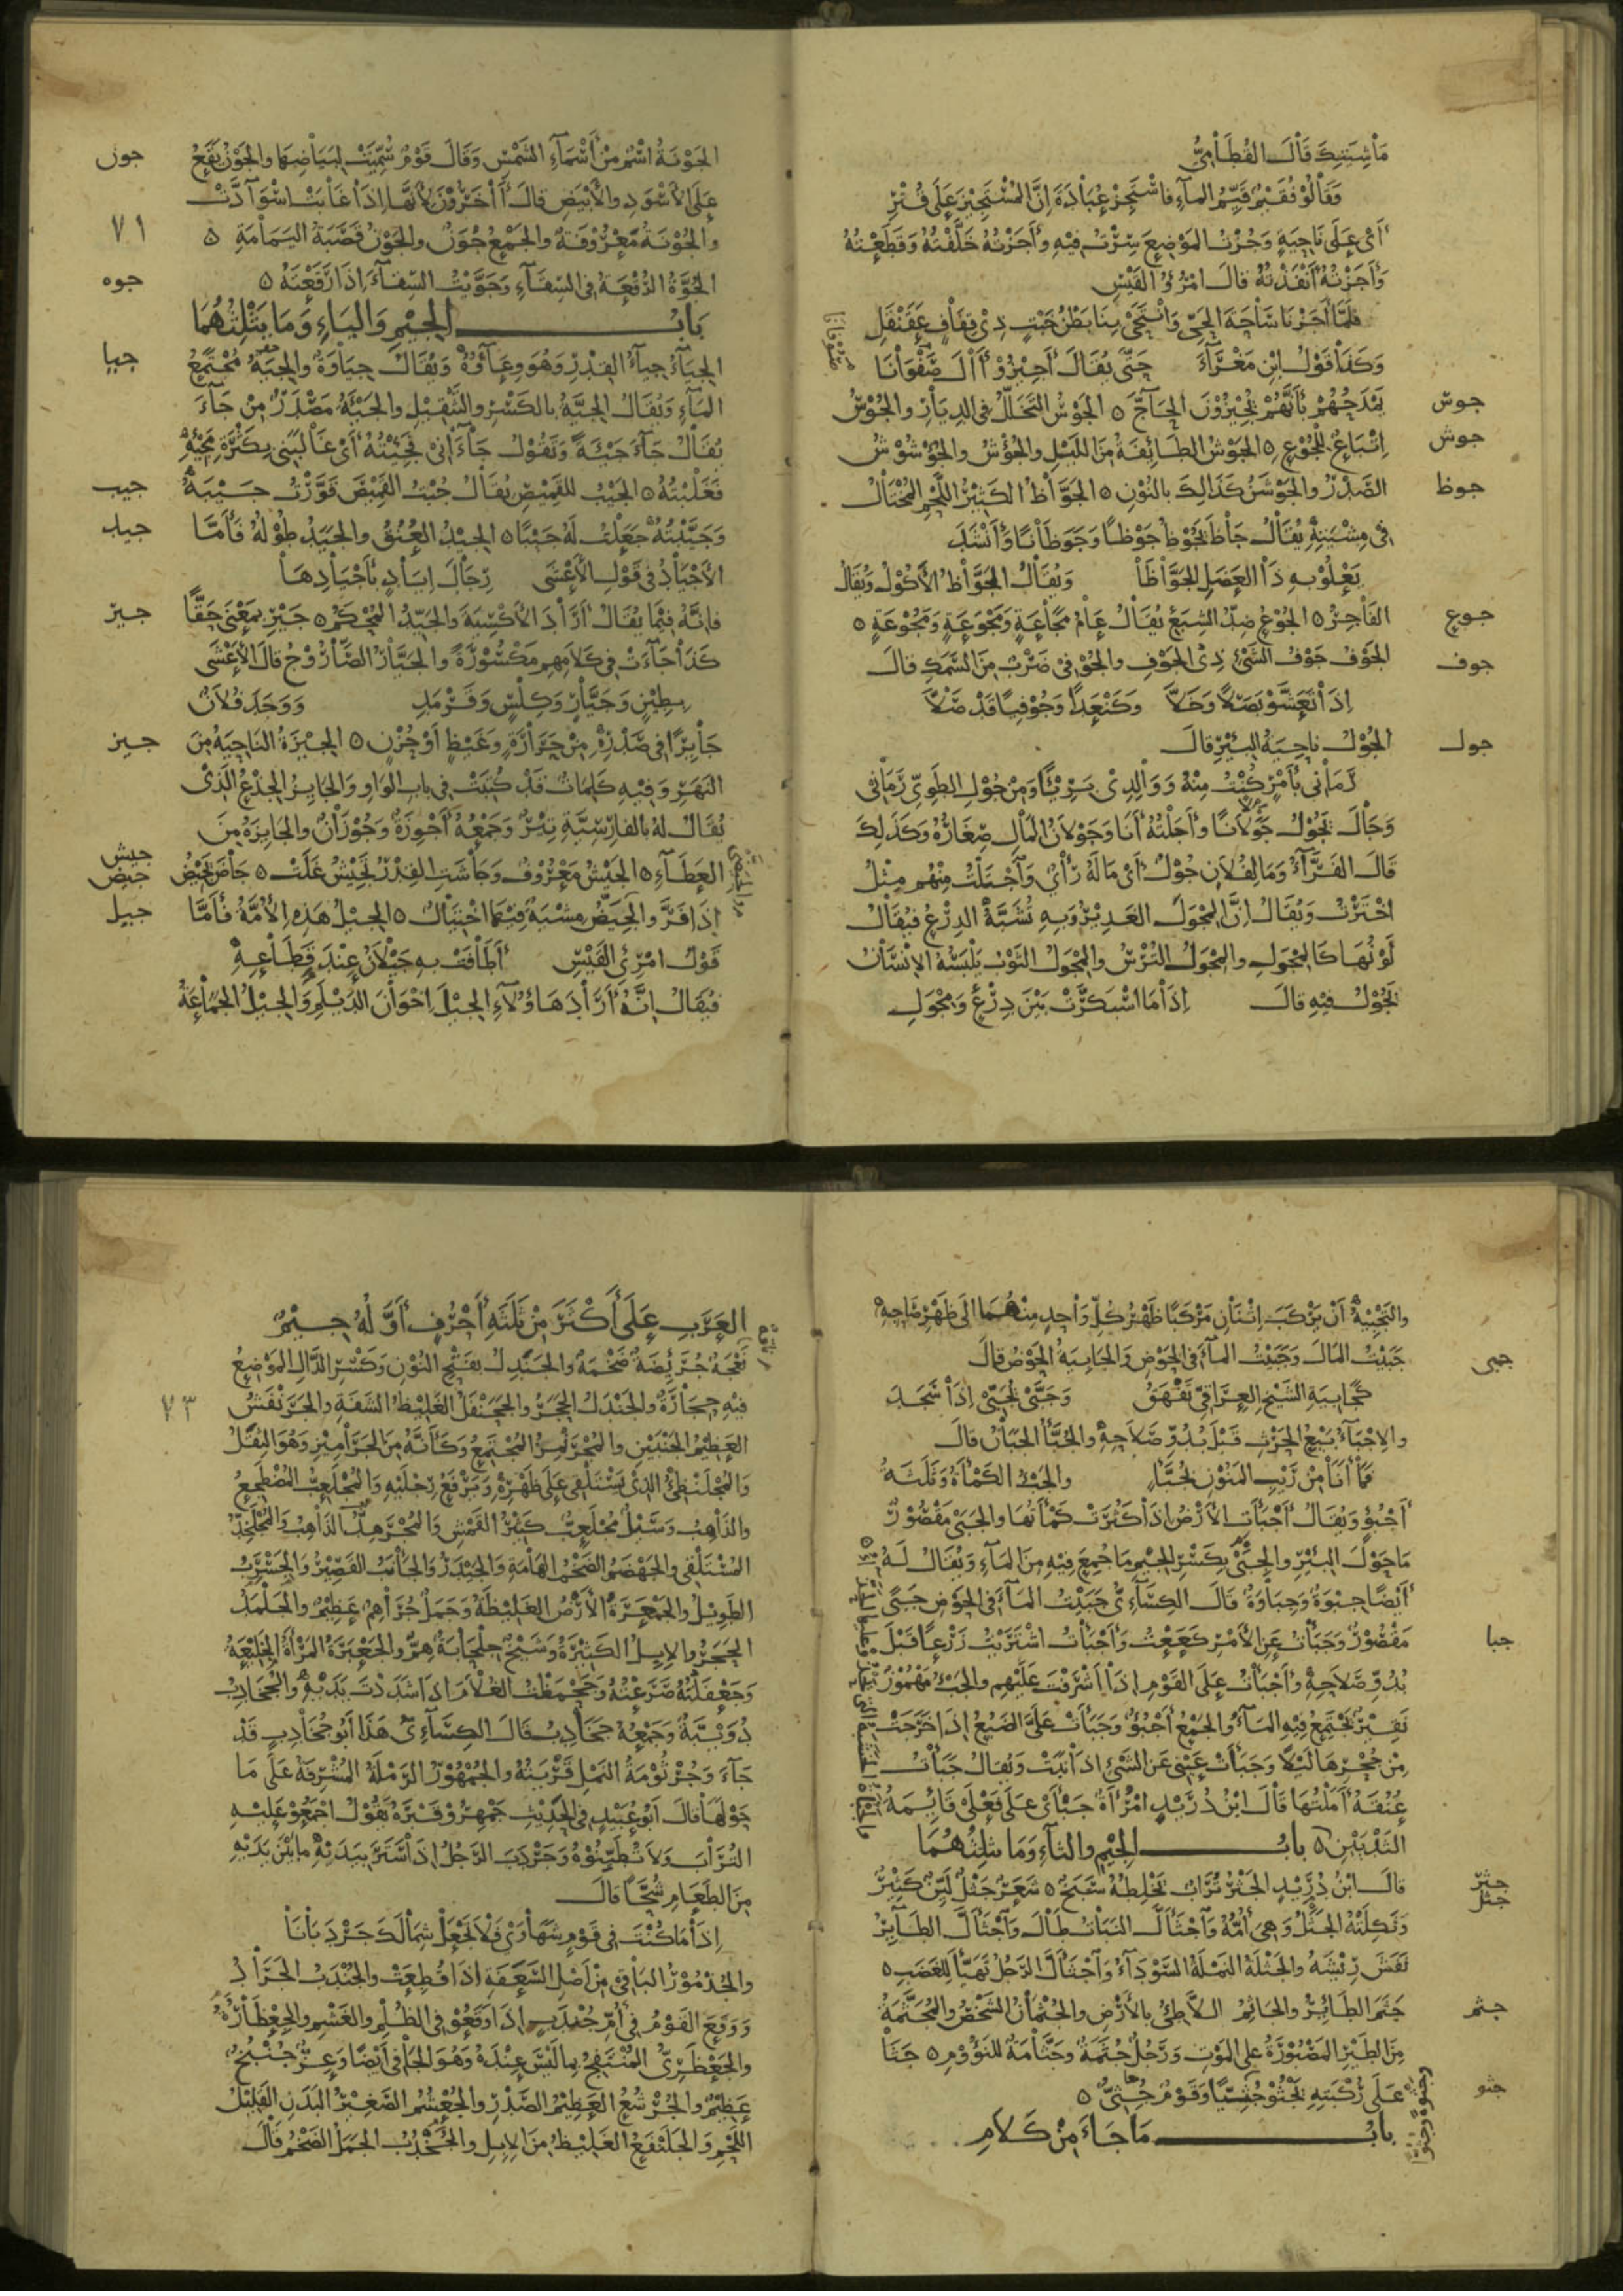 مَاشِيَتِكَ قَالَ القُطَامِيُّ
وَقَالُوْ فُقَيْمٌ قَيِّمُ المآءِ فاسْتَجِزْ عُبَادَةَ إِنَّ المُسْتَجِيْزَ عَلَى قُتْرِ
أَىْ عَلَى نَاحِيَةٍ وَجُزْتُ المَوْضِعَ سِرْتُ فِيْهِ وأَجَزْتُهُ خَلَّفْتُهُ وَقَطَعْتُهُ
وَأَجَزْتُهُ أَنْفَذْتُهُ قالَ امْرُؤُ القَيْسِ
فَلَمَّا أَجَزْنَا سَاحَةَ الحَيِّ وَانْتَحَى بِنَا بَطْنُ خَبْتٍ ذِى قِفَافٍ عَقَنْقَلِ
وَكَذَا قَوْلُ ابْنِ مَغْرَآءَ حَتَّى يُقَالَ أَجِيْزُوْا أَالَ صَفْوَانَا
جوس يَمْدَحُهُمْ بأَنَّهُمْ يُجِيْزُوْنَ الحَاجَّ ه الجَوْسُ التَّخَلُّلُ فى الدِيَارِ والجُوْسُ
جوش اِتْبَاعٌ لِلْجُوْعِ ه الجَوْشُ الطَائِفَةُ مِنَ اللَيْلِ والجُؤْشُ والجُؤْشُوْشُ
جوظ الصَدْرُ والجَوْشَنُ كَذَالِكَ بالنُوْنِ ه الجَوَّاظُ الكَثِيْرُ اللَحْمِ المُخْتَالُ
فى مِشْيَتِهِ يُقَالُ جَاظَ يَجُوْظُ جَوْظًا وَجَوَظَانًا وَأَنْشَدَ
يَعْلُوْ بِهِ ذَا العَضَلِ الجَوَّاظَا وَيُقَالُ الجَوَّاظُ الأَكُوْلُ وَيُقَالُ
جوع الفَاجِرُ ه الجُوْعُ ضِدُّ الشِبَعِ يُقَالُ عَامُ مَجَاعَةٍ وَمَجْوَعَةٍ وَمَجُوْعَةٍ ه
جوف الجَوْفُ جَوْفُ الشَيْءِ ذِى الجَوْفِ والجُوْفِىُّ ضَرْبٌ مِنَ السَمَكِ قالَ
إِذَا تَعَشَّوْ بَصَلاً وَخَلاَّ وَكَنْعَدًا وَجُوْفِيًا قَدْ صَلاَّ
جول الجُوْلُ ناحِيَةُ البِئْرِ قالَ
رَمَانِى بأَمْرٍ كُنْتُ مِنْهُ وَوَالِدِى بَرِيْئًا وَمِنْ جُوْلِ الطَوِىِّ رَمَانِى
وَجَالَ يَجُوْلُ جَوَلاَنًا وأَجَلْتُهُ أَنَا وَجَوَلاَنُ المَالِ صِغَارُهُ وَكَذَلِكَ
قَالَ الفَرَّآءُ وَمَا لِفُلاَنٍ جُوْلٌ أَى مَالَهُ رَأْىٌ وَاجْتَلْتُ مِنْهُم مِثْلُ
اخْتَرْتُ وَيُقَالُ إِنَّ المِجْوَلَ الغَدِيْرُ وَبِهِ تُشَبَّهُ الدِرْعُ فيُقَالُ
لَوْنُهَا كَالمِجْوَلِ والمِجْوَلُ التُرْسُ والمِجْوَلُ الثَوْبُ يَلْبَسُهُ الإِنْسَانُ
يَجُوْلُ فِيْهِ قالَ إِذَا مَا اسْبَكَرَّتْ بَيْنَ دِرْعٍ وَمِجْوَلِ
جون الجَوْنَةُ اسْمٌ مِنْ أَسْمَآءِ الشَمْسِ وَقَالَ قَوْمٌ سُمِّيَتْ لِبَيَاضِهَا والجَوْنُ يَقَعُ
عَلَى الأَسْوَدِ والأَبْيَضِ قالَ أَاخَرُوْنَ لأَنَّهَا إِذَا غَابَتْ اسْوَآدَّتْ
٧١ والجُوْنَةُ مَعْرُوْفَةٌ والجَمْعُ جُوَنٌ والجَوْنُ قَصَبَةُ اليَمَامَةِ ه
جوه الجُوَّةُ الرُقْعَةُ فى السِقَآءِ وَجَوَّيْتُ السِقَآءَ إِذَا رَقَعْتَهُ ه
بَابُ الجِيْمِ وَاليَاءِ وَمَا يَثْلِثُهُمَا
جيا الجِيَآءُ جِيآءُ القِدْرِ وَهُوَ وِعَآؤُهُ وَيُقَالُ جِيَاوَةٌ والجِيَّةُ مُجْتَمَعُ
المَآءِ وَيُقَالُ الجِيَّةُ بالكَسْرِ والتَثْقِيْلِ والجَيْئَةُ مَصْدَرٌ مِنْ جَآءَ
يُقَالُ جَآءَ جَيْئَةً وَتَقُوْلُ جَاءَانِى فَجِئْتُهُ أَىْ غَالَبَنِى بِكَثْرَةِ مَجِيْئِهِ
جيب فَغَلَبْتُهُ ه الجَيْبُ للقَمِيْصِ يُقَالُ جُبْتُ القَمِيْصَ قَوَّرْتُ جَيْبَهُ
جيد وَجَيَّبْتُهُ جَعَلْتُ لَهُ جَيْبًا ه الجِيْدُ العُنُقُ والجَيَدُ طُوْلُهُ فأَمَّا
الأَجْيَادُ فى قَوْلِ الأَعْشَى رِجَالَ إِيَادٍ بأَجْيَادِهَا
جير فإِنَّهُ فِيْمَا يُقَالُ أَرَادَ الأَكْسِيَةَ والجَيِّدُ المُحْكَمُ ه جَيْرِ بمَعْنَى حَقًّا
كَذَا جَآءَتْ فى كَلاَمِهِم مَكْسُوْرَةً والجَيَّارُ الصَّارُوْجُ قالَ الأَعْشَى
بِطِيْنٍ وَجَيَّارٍ وَكِلْسٍ وَقَرْمَدِ وَوَجَدَ فُلاَنٌ
جيز جَايِرًا فى صَدْرِهِ مِنْ حَرَارَةِ وَغَيْظٍ أَوْ حُزْنٍ ه الجِيْزَةُ الناحِيَةُ مِنَ
النَهَرِ وَفِيْهِ كَلِمَاتٌ قَدْ كُتِبَتْ فى بابِ الوَاوِ والجَايِزُ الجِذْعُ الَذِىْ
يُقَالُ لَهُ بالفارِسِيَّةِ تِيْرُ وَجَمْعُهُ أَجْوِزَةٌ وَجُوْزَانٌ والجَايِزَةُ مِنَ
جيش جيض العَطَآءِ ه الجَيْشُ مَعْرُوْفٌ وَجَاشَتِ القِدْرُ تَجِيْشُ غَلَتْ ه جَاضَ يَجِيْضُ
جيل إِذَا فَرَّ والجِيَضُّ مِشْيَةٌ فِيْهَا اخْتِيَالٌ ه الجِيْلُ هَذِهِ الأُمَّةُ فأَمَّا
قَوْلُ امْرِئِ القَيْسِ أَطَافَتْ بِهِ جَيْلاَنُ عِنْدَ قِطَاعِهِ
فيُقَالُ إِنَّهُ أَرَادَ هَاؤُلآءِ الجِيْلَ إِخْوَانَ الدَيْلَمِ وَالجِيْلُ الجَمَاعَةُ
والتَجْبِيَةُ أَنْ يَرْكَبَ اِثْنَانِ مَرْكَبًا ظَهْرُ كُلِّ وَاحِدٍ مِنْهُمَا إِلَى ظَهْرِ صَاحِبِهِ
جبى جَبَيْتُ المَالَ وَجَبَيْتُ المآءَ فى الحَوْضِ وَالجَابِيَةُ الحَوْضُ قالَ
كَجَابِيَةِ الشَيْخِ العِرَاقِىِّ تَفْهَقُ وَجَبَّى يُجَبِّى إِذَا سَجَدَ
والإِجْبَآءُ بَيْعُ الحَرْثِ قَبْلَ بُدُوِّ صَلاَحِهِ والجُبَّأُ الجَبَانُ قالَ
فَمَا أَنَا مِنْ رَيْبِ المَنُوْنِ بِجُبَّإٍ والجَبْءُ الكَمْأَةُ وَثَلَثَةُ
أَجْبُؤٍ وَيُقَالُ أَجْبَأَتِ الأَرْضُ إِذَا كَثُرَتْ كَمْأَتُهَا والجَبَى مَقْصُوْرٌ
مَا حَوْلَ البِئْرِ والجِبَى بِكَسْرِ الجِيْمِ مَا جُمِعَ فِيْهِ مِنَ المَآءِ وَيُقَالُ لَهُ
أَيْضًا جِبْوَةٌ وَجِبَاوَةٌ قَالَ الكِسَآءِىُّ جَبَيْتُ المآءَ فى الحَوْضِ جَبًى
جبا مَقْصُوْرٌ وَجَبَأْتُ عَنِ الأَمْرِ كَعَعْتُ وَأَجْبَأْتُ اشْتَرَيْتُ زَرْعًا قَبْلَ
بُدُوِّ صَلاَحِهِ وأَجْبَأْتُ عَلَى القَوْمِ إِذَا أَشْرَفْتَ عَلَيْهِم والجَبْءُ مَهْمُوْزٌ
نَقِيْرٌ يَجْتَمِعُ فِيْهِ المآءُ والجَمْعُ أَجْبُؤٌ وَجَبَأَتْ عَلَىَّ الضَبُعُ إِذَا خَرَجَتْ
مِنْ جُحْرِهَا لَيْلاً وَجَبَأَتْ عَيْنِى عَنِ الشَيْءِ إِذَا نَبَتْ وَيُقالُ جَبَأْتُ
عُنُقَهُ أَمَلْتُهَا قَالَ ابْنُ دُرَيْدٍ امْرَأَةٌ جَبْأَى عَلَى فَعْلَى قَائِمَةُ
الثَدْيَيْنِ ه بابُ الجِيْمِ والثآءِ وَمَا يثلِثُهُمَا
جثر قالَ ابْنُ دُرَيْدٍ الجَثْرُ تُرَابٌ يَخْلِطُهُ سَبَخٌ ه شَعَرٌ جَثْلٌ لَيِّنٌ كَثِيْرٌ
جثل وَثَكِلَتْهُ الجَثَلُ وَهِىَ أُمُّهُ وَاجْثَأَلَّ النَبَاتُ طَالَ وَاجْثَأَلَّ الطَآئِرُ
نَفَشَ رِيْشَهُ والجَثْلَةُ النَمْلَةُ السَوْدَآءُ وَاجْثَأَلَّ الرَجُلُ تَهَيَّأَ لِلْغَضَبِ ه
جثم جَثَمَ الطَائِرُ والجَاثِمُ اللاَّطِئُ بالأَرْضِ والجُثْمَانُ الشَخْصُ والمُجَثَّمَةُ
مِنَ الطَيْرِ المَصْبُوْرَةُ عَلَى المَوْتِ وَرَجُلٌ جُثَمَةٌ وَجَثَّامَةٌ للنَؤُوْمِ ه جَثَا
جثو عَلَى رُكْبَتِهِ يَجْثُوْ جُثِيًّا وَقَوْمٌ جُثِىٌّ ه
بابُ مَا جَاءَ مِنْ كَلاَمِ
العَرَبِ عَلَى أَكْثَرَ مِنْ ثَلَثَةِ أَحْرُفٍ أَوَّلُهُ جِيْمٌ
نَعْجَةٌ جُرَئِضَةٌ ضَخْمَةٌ والجَنَدِلُ بفَتْحِ النُوْنِ وَكَسْرِ الدَّالِ المَوْضِعُ
٧٣ فِيْهِ حِجَارَةٌ والجَنْدَلُ الحَجَرُ والجَحَنْفَلُ الغَلِيْظُ الشَفَةِ والجَرَنْفَسُ
العَظِيْمُ الجَنْبَيْنِ والمُجْرَنْمِزُ المُجْتَمِعُ وَكَأَنَّهُ مِنَ الجَرَامِيْزِ وَهُوَ
وَالمُجْلَنْظِئُ الَّذِىْ يَسْتَلْقِى عَلَى ظَهْرِهِ وَيَرْفَعُ رِجْلَيْهِ وَالمُجْلَعِبُّ المُضْطَجِعُ
والذَاهِبُ وَسَيْلٌ مُجْلَعِبٌّ كَثِيْرُ القَمْشِ وَالمُجْرَهِدُّ الذَاهِبُ وَالمُجْلَخِدُّ
المُسْتَلْقِى والجَهْضَمُ الضَخْمُ الهَامَةِ والجَيْدَرُ والجَأْنَبُ القَصِيْرُ والجَسْرَبُ
الطَوِيْلُ والجَمْعَرَةُ الأَرْضُ الغَلِيْظَةُ وَجَمَلٌ جُرَاهِمٌ عَظِيْمٌ والجَلْمَدُ
الحَجَرُ والإِبِلُ الكَثِيْرَةُ وَشَيْخٌ جِلْحَابَةٌ هِمٌّ والجَعْبَرَةُ المَرْأَةُ
وَجَعْفَلْتُهُ صَرَعْتُهُ وَجَحْمَظْتُ الغُلاَمَ إِذَا شَدَدْتَ يَدَيْهِ والجُخَادِبُ
دُوَيْبَّةٌ وَجَمْعُهُ جَخَادِبُ قَالَ الكِسَآءِىُّ هَذَا أَبُوْ جُخَادِبٍ قَدْ
جَآءَ وَجُرْثُوْمَةُ النَمْلِ قَرْيَتُهُ والجُمْهُوْرُ الرَمْلَةُ المُشْرِفَةُ عَلَى مَا
حَوْلَهَا قَالَ أَبُوْ عُبَيْدٍ فى الحَدِيْثِ جَمْهِرُوْ قَبْرَهُ يَقُوْلُ اجْمَعُوْ عَلَيْهِ
التُرَابَ وَلاَ تُطَيِّنُوْهُ وَجَرْدَبَ الرَجُلُ إِذَا سَتَرَ بِيَدَيْهِ مابَيْنَ يَدَيْهِ
مِنَ الطَعَامِ شُحًّا قالَ
إِذَا مَا كُنْتَ فى قَوْمٍ شَهَاوَى فَلاَ تَجْعَلْ شِمَالَكَ جَرْدَبَانَا
والجُذْمُوْرُ البَاقِى مِنْ أَصْلِ السَعَفَةِ إِذَا قُطِعَتْ والجُنْدَبُ الجَرَادُ
وَوَقَعَ القَوْمُ فِى أُمِّ جُنْدَبٍ إِذَا وَقَعُوْ فى الظُلْمِ والغَشْمِ والجِعْظَارَةُ
والجَعْظَرِىُّ المُنْتَفِجُ بِمَا لَيْسَ عِنْدَهُ وَهُوَ الجَافِى أَيْضًا وَعِزٌّ جُنْبُخٌ
عَظِيْمٌ والجُرْشُعُ العَظِيْمُ الصَّدْرِ والجُعْشُمُ الصَغِيْرُ البَدَنِ القَلِيْلُ
اللَحْمِ وَالجَلَنْفَعُ الغَلِيْظُ مِنَ الإِبِلِ والجُخْدُبُ الجَمَلُ الضَخْمُ قالَ